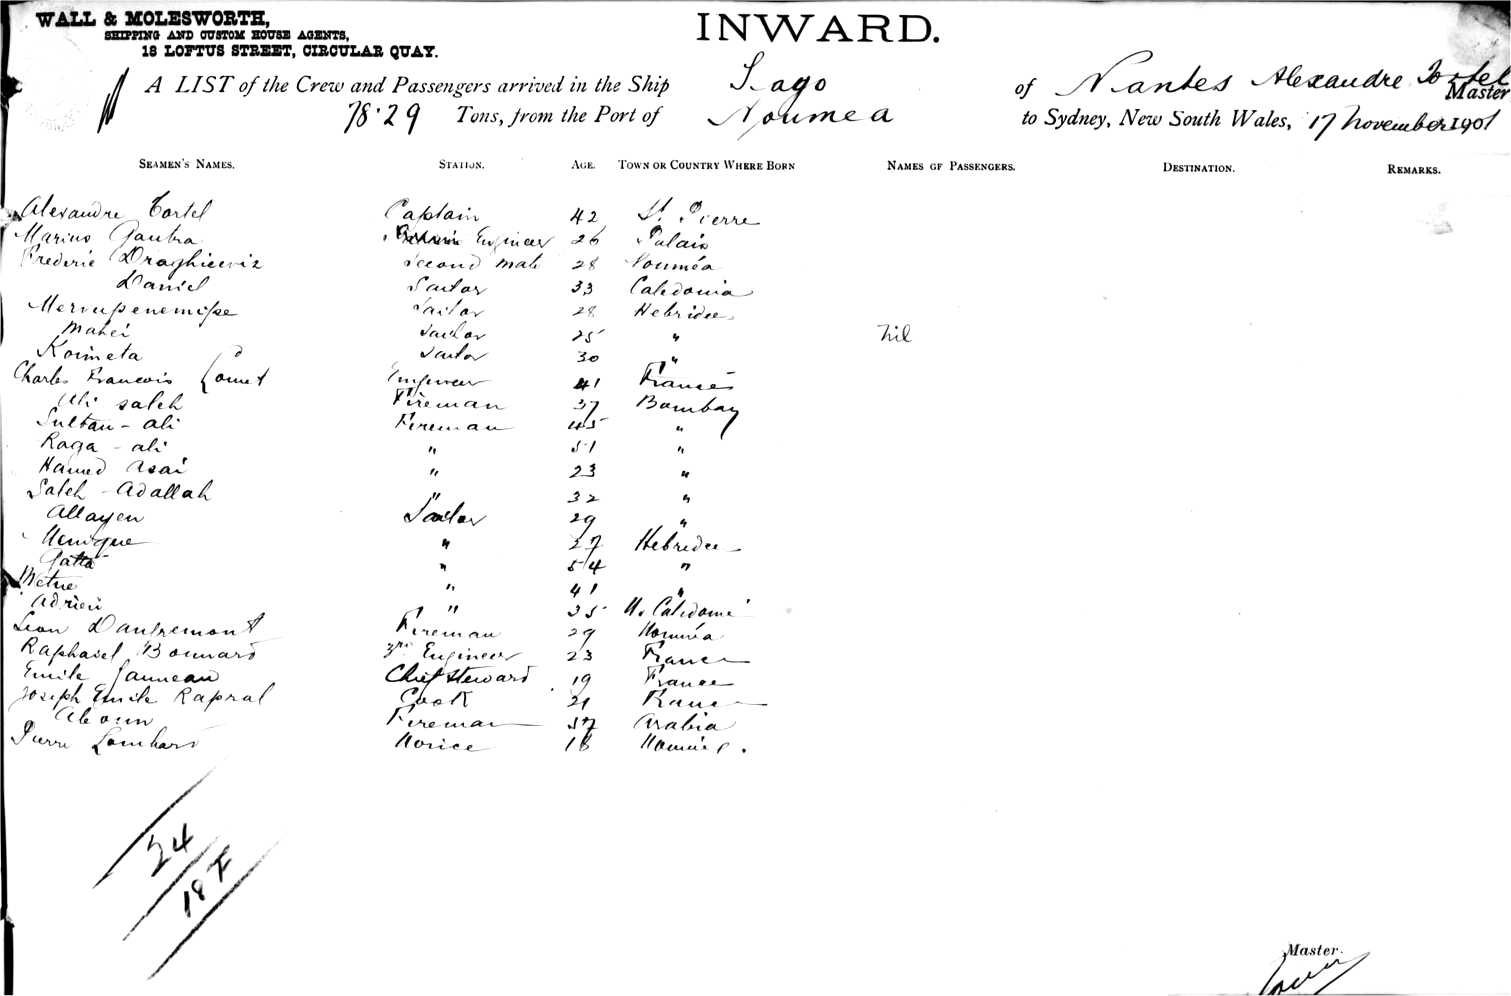 WALL & MOLESWORTH,
SHIPPING AND CUSTOM HOUSE AGENTS,
18 LOFTUS STREET, CIRCULAR QUAY.
INWARD.
A LIST of the Crew and Passengers arrived in the Ship Iago of Nantes Alexandre Tortel Master
78.29 Tons, from the Port of Noumea to Sydney, New South Wales, 17 November 1901
SEAMEN'S NAMES. STATION. AGE. TOWN OR COUNTRY WHERE BORN NAMES OF PASSENGERS. DESTINATION. REMARKS.
Alexandre Tortel Captain 42 St. Pierre
Marius Engineer 26 Palais
Frederic second mate 28 Nouméa
Daniel Sailor 33 Caledonia
Sailor 28 Hebrides
Mahei Sailor 25 "
Koimeta Sailor 30 "
Nil
Charles Francois Comet Engineer 41 France
Ali saleh Fireman 37 Bombay
Sultan - ali Fireman 45 "
Raga - ali " 51 "
Hamed Asai " 23 "
Saleh - Adallah " 32 "
Allayen Sailor 29 "
" 27 Hebrides
Gatta " 54 "
Metue " 41 "
Adrien " 35 N. Caledonie
Leon Dautremont Fireman 29 Nouméa
Raphael Bonnard 3rd Engineer 23 France
Emile Janneau Chief Steward 19 France
Joseph Emile Rapral Cook 21 France
Aboun Fireman 37 Arabia
Pierre Lombard Novice 18
24
18 F
Master.